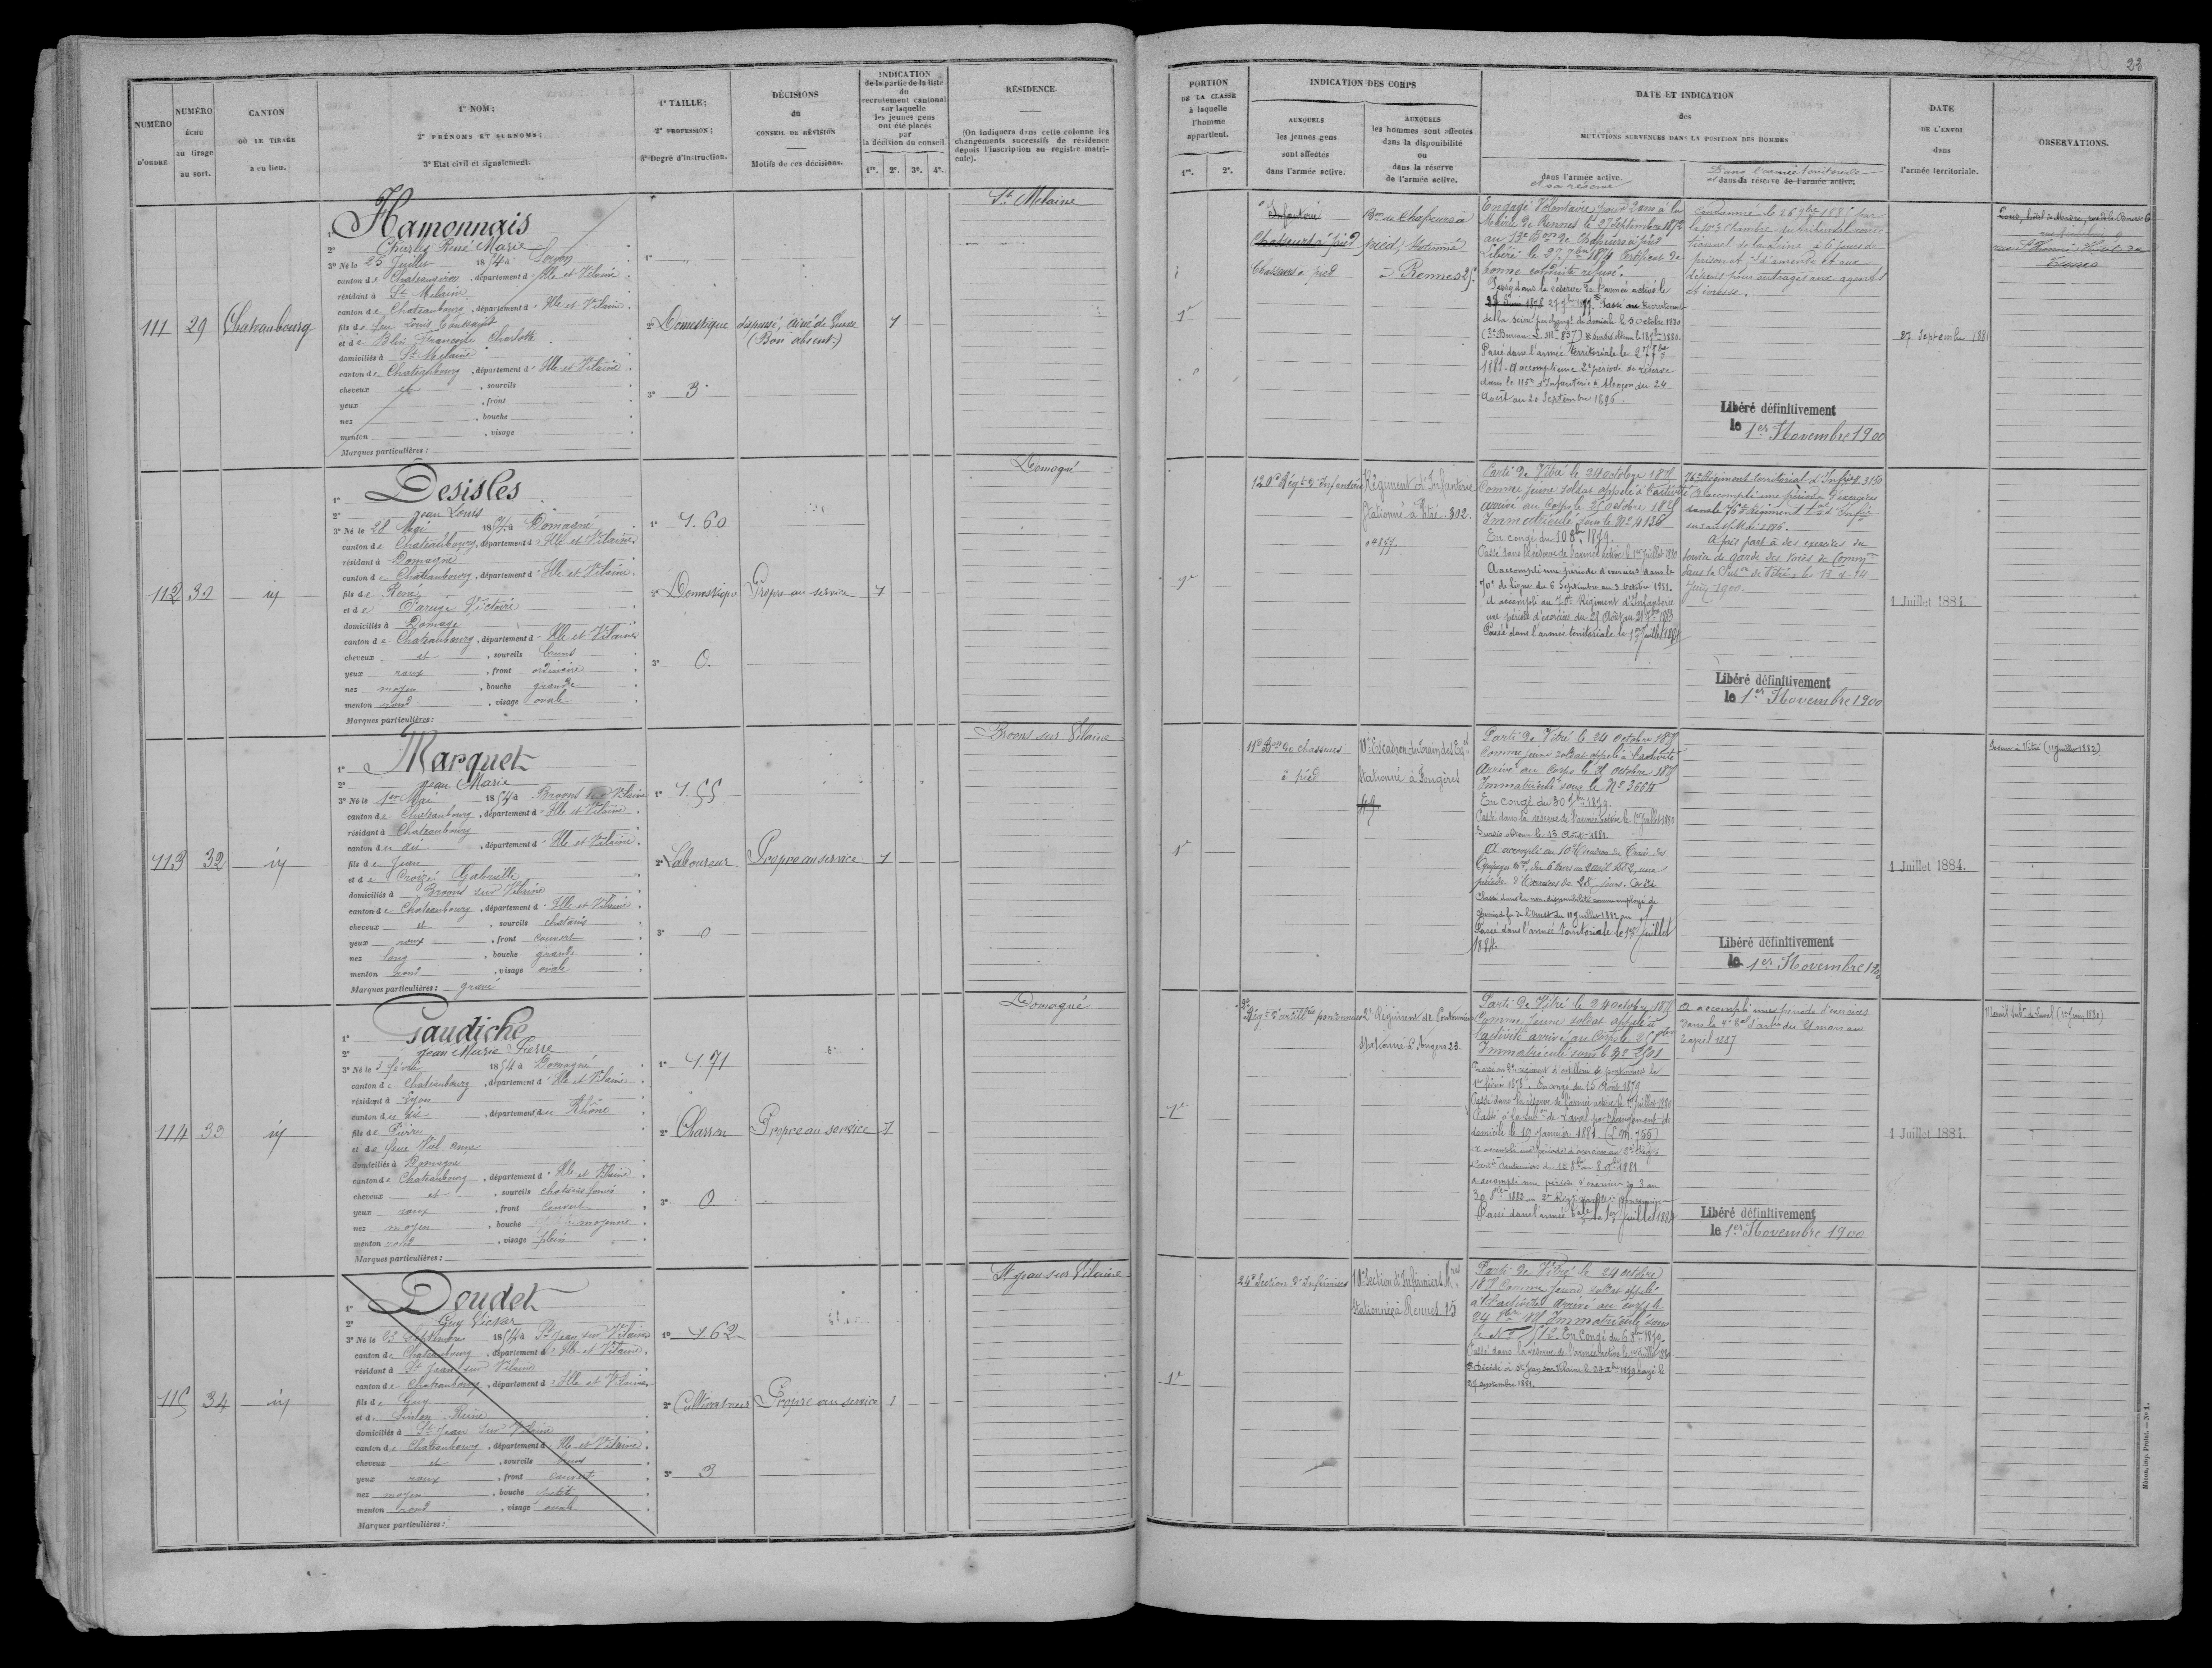 23
NUMÉRO
D'ORDRE
NUMÉRO
ÉCHU
au tirage
au sort.
CANTON
OÙ LE TIRAGE
a eu lieu.
1° NOM;
2° PRÉNOMS ET SURNOMS;
3° Etat civil et signalement.
1° TAILLE;
2° PROFESSION;
3° Degré d'instruction.
DÉCISIONS
du
CONSEIL DE RÉVISION
Motifs de ces décisions.
INDICATION
de la partie de la liste
du
recrutement cantonal
sur laquelle
les jeunes gens
ont été placés
par
la décision du conseil
1re. 2e. 3e. 4e.
RÉSIDENCE.
(On indiquera dans cette colonne les
changements successifs de résidence
depuis l'inscription au registre matri-
cule).
PORTION
DE LA CLASSE
à laquelle
l'homme
appartient.
1re. 2e.
INDICATION DES CORPS
AUXQUELS
les jeunes gens
sont affectés
dans l'armée active.
AUXQUELS
les hommes sont affectés
dans la disponibilité
ou
dans la réserve
de l'armée active.
DATE ET INDICATION
des
MUTATIONS SURVENUES DANS LA POSITION DES HOMMES
dans l'armée active.
et sa réserve
Dans l'armée territoriale
et dans la réserve de l'armée active.
DATE
DE L'ENVOI
dans
l'armée territoriale.
OBSERVATIONS.
111
29
Chateaubourg
1° Hamonnais
2° Charles René Marie
3° Né le 25 Juillet 1854 à
canton de , département d'Ille et Vilaine.
résidant à St Melaine
canton de Chateaubourg, département d'Ille et Vilaine.
fils de feu Louis
et de Blin Françoise Charlotte
domiciliés à St Melaine
canton de Chateaubourg, département d'Ille et Vilaine.
cheveux et , sourcils
yeux , front
nez , bouche
menton , visage
Marques particulières :
1° "
2° Domestique
3° 3
dispensé, aîné de
(Bon absent)
1
St Melaine
1e
Infanterie
Chasseurs à pied
Chasseurs à pied
Bon de Chasseurs à
pied, stationné
à Rennes 25.
Engagé Volontaire pour 2 ans à la
Mairie de Rennes le 27 Septembre 1872
au 13e Bon de Chasseurs à pied
Libéré le 27 7bre 1874 Certificat de
bonne conduite refusé.
Passé dans la réserve de l'armée active le
27 7bre 1877. Passé au Recrutement
de la Seine par changt de domicile le 5 octobre 1880
Passé dans l'armée territoriale le 27 7bre
1881. A accompli une 2e période de réserve
dans le 115e d'Infanterie à Alençon du 24
Août au 20 Septembre 1896.
Condamné le 26 9bre 188 par
la 10e Chambre du tribunal correc
tionnel de la Seine à 6 jours de
prison et d'amende et aux
dépens pour outrages aux agents
et ivresse.
Libéré définitivement
le 1er Novembre 1900
27 Septembre 1881
112
30
id
1° Desisles
2° Jean Louis
3° Né le 28 Mai 1854 à Domagné
canton de Chateaubourg, département d'Ille et Vilaine.
résidant à Domagné
canton de Chateaubourg, département d'Ille et Vilaine.
fils de René
et de Victoire
domiciliés à Domagné
canton de Chateaubourg, département d'Ille et Vilaine.
cheveux et , sourcils bruns
yeux roux , front ordinaire
nez moyen , bouche grande
menton rond , visage ovale
Marques particulières :
1° 1.60
2° Domestique
3° 0.
Propre au service
1
Domagné
1e
120e Régt d'Infanterie
Régiment d'Infanterie
stationné à Vitré. 302.
Parti de Vitré le 24 octobre 1875
Comme jeune soldat appelé à l'activité
arrivé au Corps le 25 octobre 1875
Immatriculé sous le No 4136
En congé du 10 8bre 1879.
Passé dans la réserve de l'armée active le 1er Juillet 1880
A accompli une période d'exercices dans le
70e de Ligne du 6 Septembre au 3 octobre 1881.
A accompli au 70e Régiment d'Infanterie
une période d'exercices du 25 Août au 21 7bre 1883
Passé dans l'armée territoriale le 1er Juillet 1884
76e Régiment territorial d'Infrie
A accompli une période d'exercices
dans le 76e Régiment tal d'Infie
A pris part à des exercices du
service de garde des voies de Comm
dans la Subon de Vitré, les 13 et 14
Juin 1900.
Libéré définitivement
le 1er Novembre 1900
1 Juillet 1884.
113
32
id
1° Marquet
2° Jean Marie
3° Né le 1er Mai 1854 à Broons sur Vilaine
canton de Chateaubourg, département d'Ille et Vilaine.
résidant à Chateaubourg
canton du dit , département d'Ille et Vilaine.
fils de Jean
et de Croizé Gabrielle
domiciliés à Broons sur Vilaine
canton de Chateaubourg, département d'Ille et Vilaine.
cheveux et , sourcils chatains
yeux roux , front couvert
nez long , bouche grande
menton rond , visage ovale
Marques particulières : gravé
1° 1.55
2° Laboureur
3° 0
Propre au service
1
Broons sur Vilaine
1e
11e Bon de chasseurs
à pied
10e Escadron du train des Eqes
Stationné à Fougères
49.
Parti de Vitré le 24 octobre 1875
Comme jeune soldat appelé à l'activité
Arrivé au Corps le octobre 1875
Immatriculé sous le No 2664
En congé du 30 7bre 1879.
Passé dans la réserve de l'armée active le 1er Juillet 1880
Sursis obtenu le 13 Août 1881.
A accompli au 10e Escadron du Train des
Equipages Mres du 6 Mars au 2 avril 1882, une
période d'Exercices de 28 jours. A été
Classé dans la non disponibilité comme employé de
Chemin de fer de l'Ouest du 11 Juillet 1882
Passé dans l'armée territoriale le 1er Juillet
1884.
Libéré définitivement
le 1er Novembre 1900
1 Juillet 1884.
à Vitré (11 Juillet 1882)
114
33
id
1° Gaudiche
2° Jean Marie Pierre
3° Né le 3 février 1854 à Domagné
canton de Chateaubourg, département d'Ille et Vilaine.
résidant à Lyon
canton du dit , département du Rhône
fils de Pierre
et de feue Viel Anne
domiciliés à Domagné
canton de Chateaubourg, département d'Ille et Vilaine.
cheveux et , sourcils chatains foncés
yeux roux , front couvert
nez moyen , bouche moyenne
menton rond , visage plein
Marques particulières :
1° 1.71
2° Charron
3° 0.
Propre au service
1
Domagné
1e
Régt d'artillie pontonniers
2e Régiment de Pontonniers
stationné à Angers 23.
Parti de Vitré le 24 octobre 1875
Comme jeune soldat appelé à
l'activité arrivé au Corps le
Immatriculé sous le No
Passé au 2e régiment d'artillerie de pontonniers le
1er février 1878. En congé du 15 Août 1879
Passé dans la réserve de l'armée active le 1er Juillet 1880
Passé à la subon de Laval par changement de
domicile le 19 Janvier 1881. (L.M. 755)
A accompli une période d'exercices au 2e Régt
A accompli une période d'exercices du 3 au
Passé dans l'armée tale le 1er Juillet 1884
A accompli une période d'exercices
dans le
avril 1887
Libéré définitivement
le 1er Novembre 1900
1 Juillet 1884.
115
34
id
1° Doudet
2° Guy Victor
3° Né le 23 Septembre 1854 à St Jean sur Vilaine
canton de Chateaubourg, département d'Ille et Vilaine.
résidant à St Jean sur Vilaine
canton de Chateaubourg, département d'Ille et Vilaine.
fils de Guy
et de Reine
domiciliés à St Jean sur Vilaine
canton de Chateaubourg, département d'Ille et Vilaine.
cheveux et , sourcils bruns
yeux roux , front couvert
nez moyen , bouche petite
menton rond , visage ovale
Marques particulières :
1° 1.62
2° Cultivateur
3° 3
Propre au service
1
St Jean sur Vilaine
1e
24e Section d'Infirmiers
10e Section d'Infirmiers Mres
Stationnée à Rennes. 15
Parti de Vitré le 24 octobre
1875 Comme jeune soldat appelé
à l'activité arrivé au corps le
24 8bre 1875 Immatriculé sous
le No . En Congé du 6 8bre 1879.
Passé dans la réserve de l'armée active le 1er Juillet 1880
Décédé à St Jean sur Vilaine le rayé le
septembre 1881.
Mâcon, imp. Protat. — No 1.